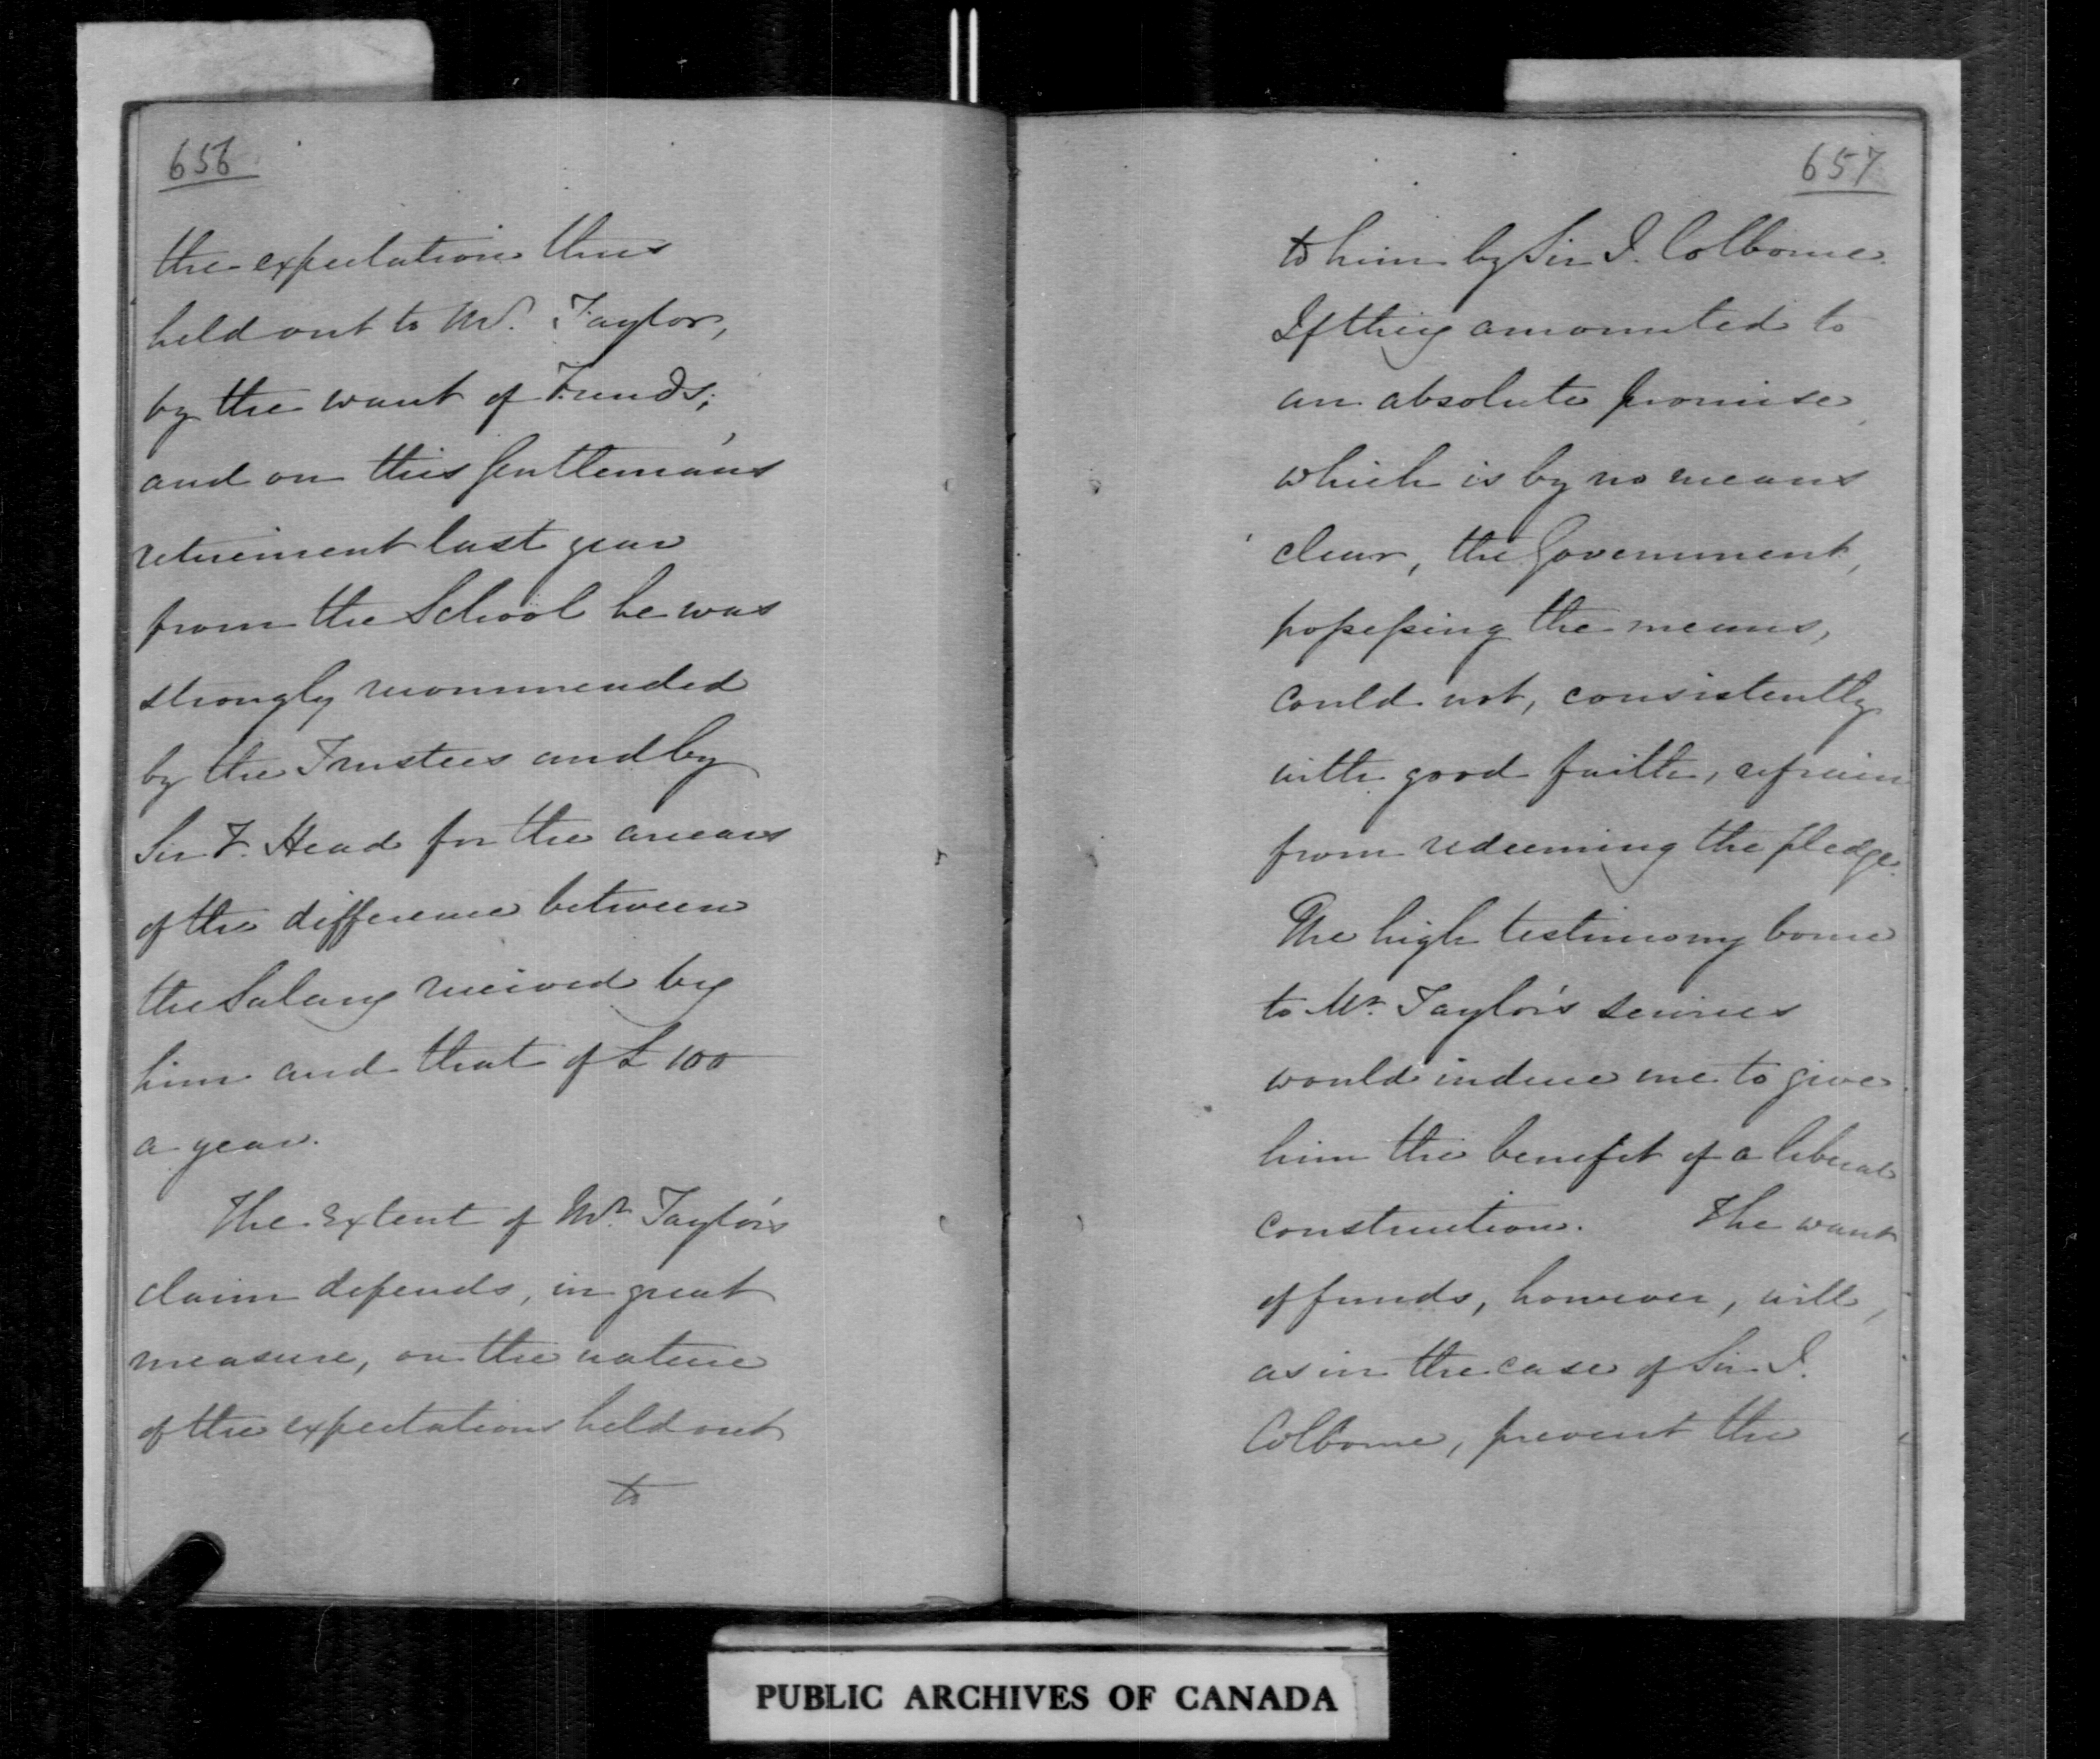 656
the expectations thus
held out to Mr. Taylor,
by the want of Funds;
and on this Gentleman's
retirement last year
from the School he was
strongly recommended
by the Trustees and by
Sir F. Head for the arrears
of the difference between
the Salary received by
him and that of £100
a year.
The extent of Mr. Taylor's
claim depends, in great
measure, on the nature
of the expectations held out
to
657
to him by Sir J. Colborne.
If they amounted to
an absolute promise,
which is by no means
clear, the Government,
possessing the means,
could not, consistently
with good faith, refrain
from redeeming the pledge.
The high testimony borne
to Mr. Taylor's services
would induce me to give
him the benefit of a liberal
construction. The want
of funds, however, will,
as in the case of Sir J.
Colborne, prevent the
PUBLIC ARCHIVES OF CANADA